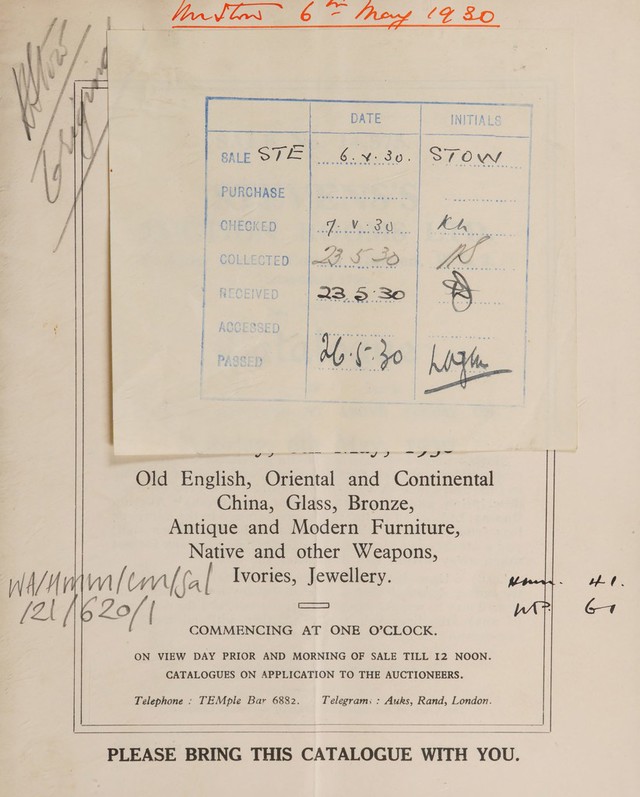 6th May 1930
Stow
Original
DATE INITIALS
SALE STE 6.V.30. STOW
PURCHASE
CHECKED 7.V.30 KL
COLLECTED 23 5 30
RECEIVED 23 5 30
ACCESSED
PASSED 26.5.30
May, 1930
Old English, Oriental and Continental
China, Glass, Bronze,
Antique and Modern Furniture,
Native and other Weapons,
Ivories, Jewellery.
WA/Hmm/cm/Sal
121/620/1
41.
61
COMMENCING AT ONE O'CLOCK.
ON VIEW DAY PRIOR AND MORNING OF SALE TILL 12 NOON.
CATALOGUES ON APPLICATION TO THE AUCTIONEERS.
Telephone : TEMple Bar 6882. Telegram: : Auks, Rand, London.
PLEASE BRING THIS CATALOGUE WITH YOU.